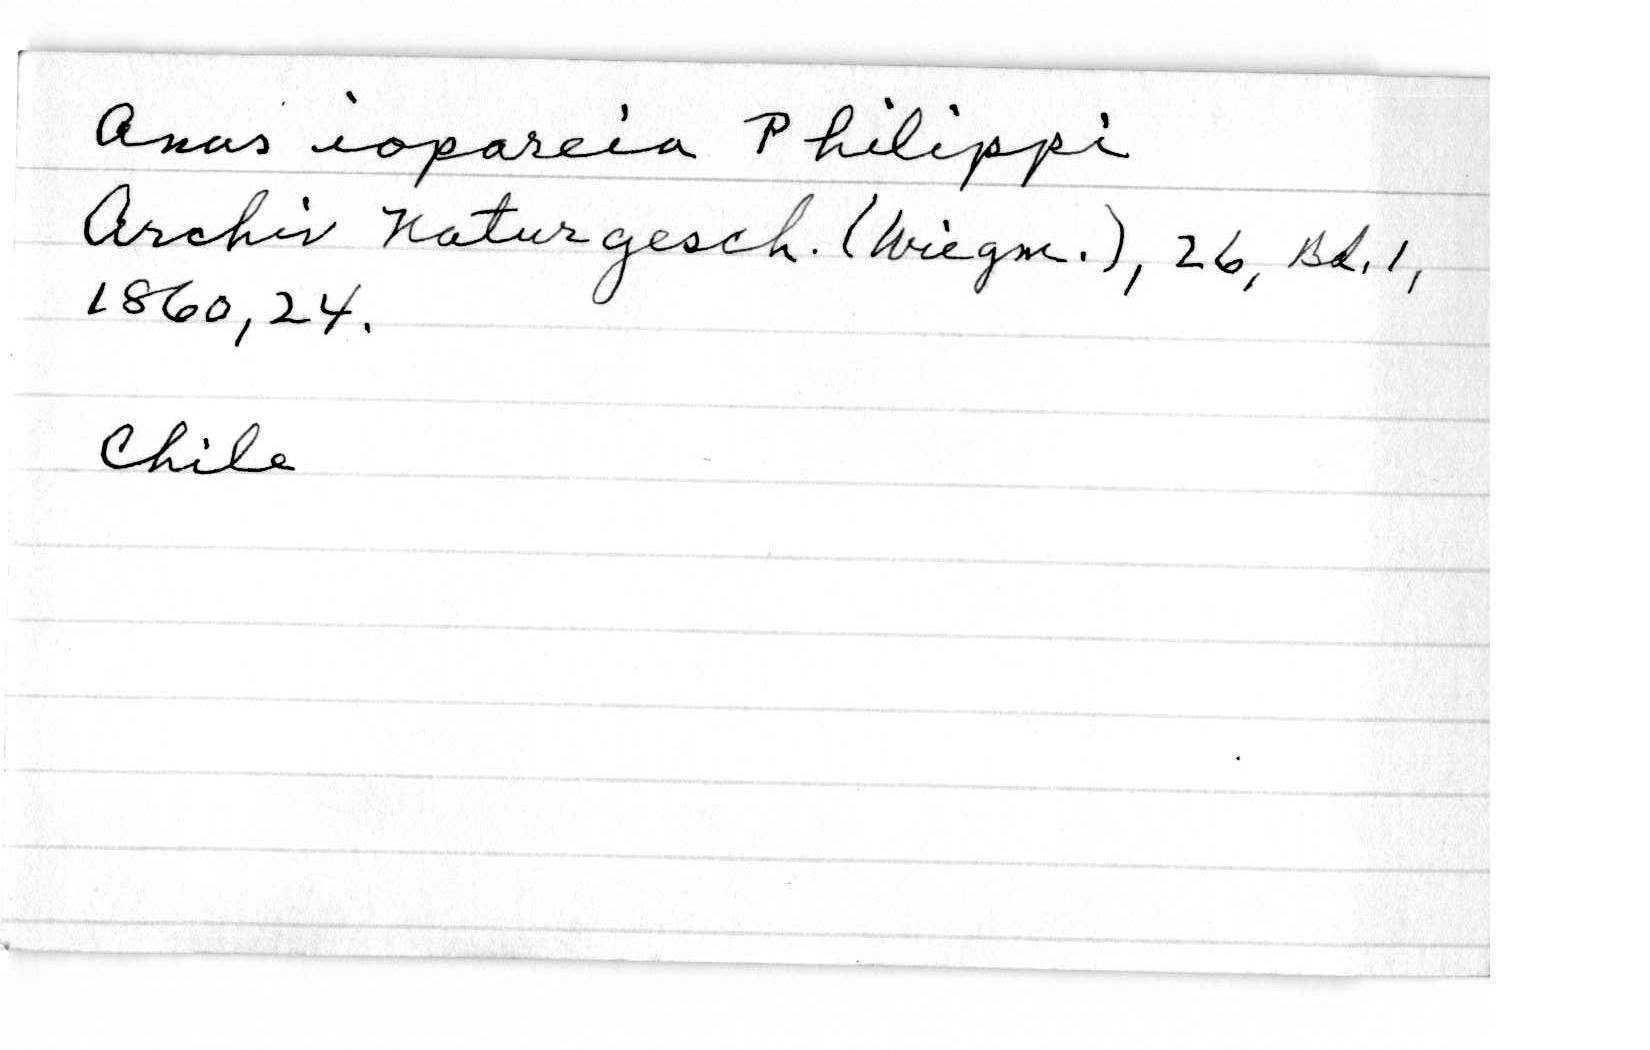 Anas iopareia Philippi
Archiv Naturgesch. (Wiegm.), 26, Bd. 1,
1860, 24.
Chile